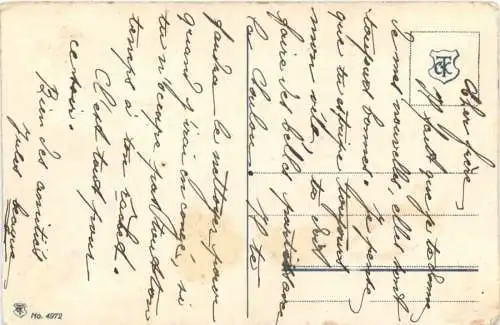 Cher frère,
Il faut que je te donne
de mes nouvelles, elles sont
toujours bonnes. Je pense
que tu toujours
mon vélo. tu dois
faire des belles parties avec
le Il te
faudra le nettoyer pour
quand j'irai en congé, si
tu n'as encore pas
temps à ton
C'est tout pour
ce soir.
Bien des amitiés
Jules
No. 4972